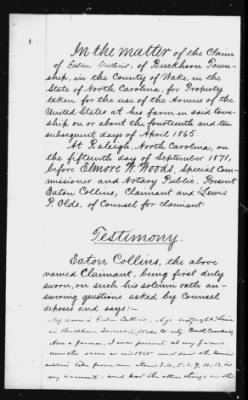 In the matter of the Claim
of Eaton Collins, of Buckhorn Town-
ship, in the County of Wake, in the
State of North Carolina, for Property
taken for the use of the Armies of the
United States at his farm in said town-
ship on or about the fourteenth and ten
subsequent days of April 1865.
At Raleigh, North Carolina, on
the fifteenth day of September 1871,
before Elmore W. Woods, Special Com-
missioner and Notary Public. Present
Eaton Collins, Claimant and Lewis
P. Olds, of Counsel for claimant
Testimony.
Eaton Collins, the above
named Claimant, being first duly
sworn, on such his solemn oath an-
swering questions asked by Counsel
deposes and says:—
My name is Eaton Collins. My age is I live
in Buckhorn Township, Wake County North Carolina.
Am a farmer. I was present at my farm
the same as in 1865 and saw the
taken from me items 3, 4, 5, 6, 9, 10, 13, in
my account, and had the other things in this